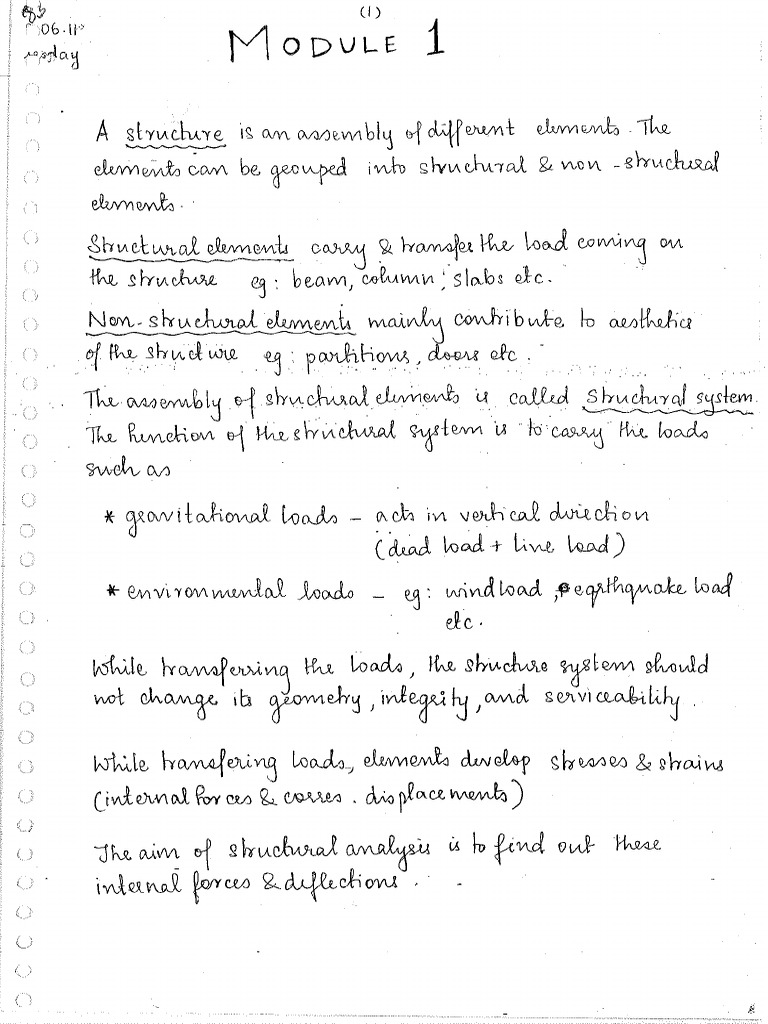 (1)
06.11
MODULE 1
A structure is an assembly of different elements. The
elements can be grouped into structural & non-structural
elements.
Structural elements carry & transfer the load coming on
the structure eg: beam, column, slabs etc.
Non-structural elements mainly contribute to aesthetics
of the structure eg: partitions, doors etc.
The assembly of structural elements is called Structural system.
The function of the structural system is to carry the loads
such as
* gravitational loads - acts in vertical direction
(dead load + live load)
* environmental loads - eg: windload, earthquake load
etc.
While transferring the loads, the structure system should
not change its geometry, integrity, and serviceability.
While transfering loads, elements develop stresses & strains
(internal forces & corres. displacements)
The aim of structural analysis is to find out these
internal forces & deflections.